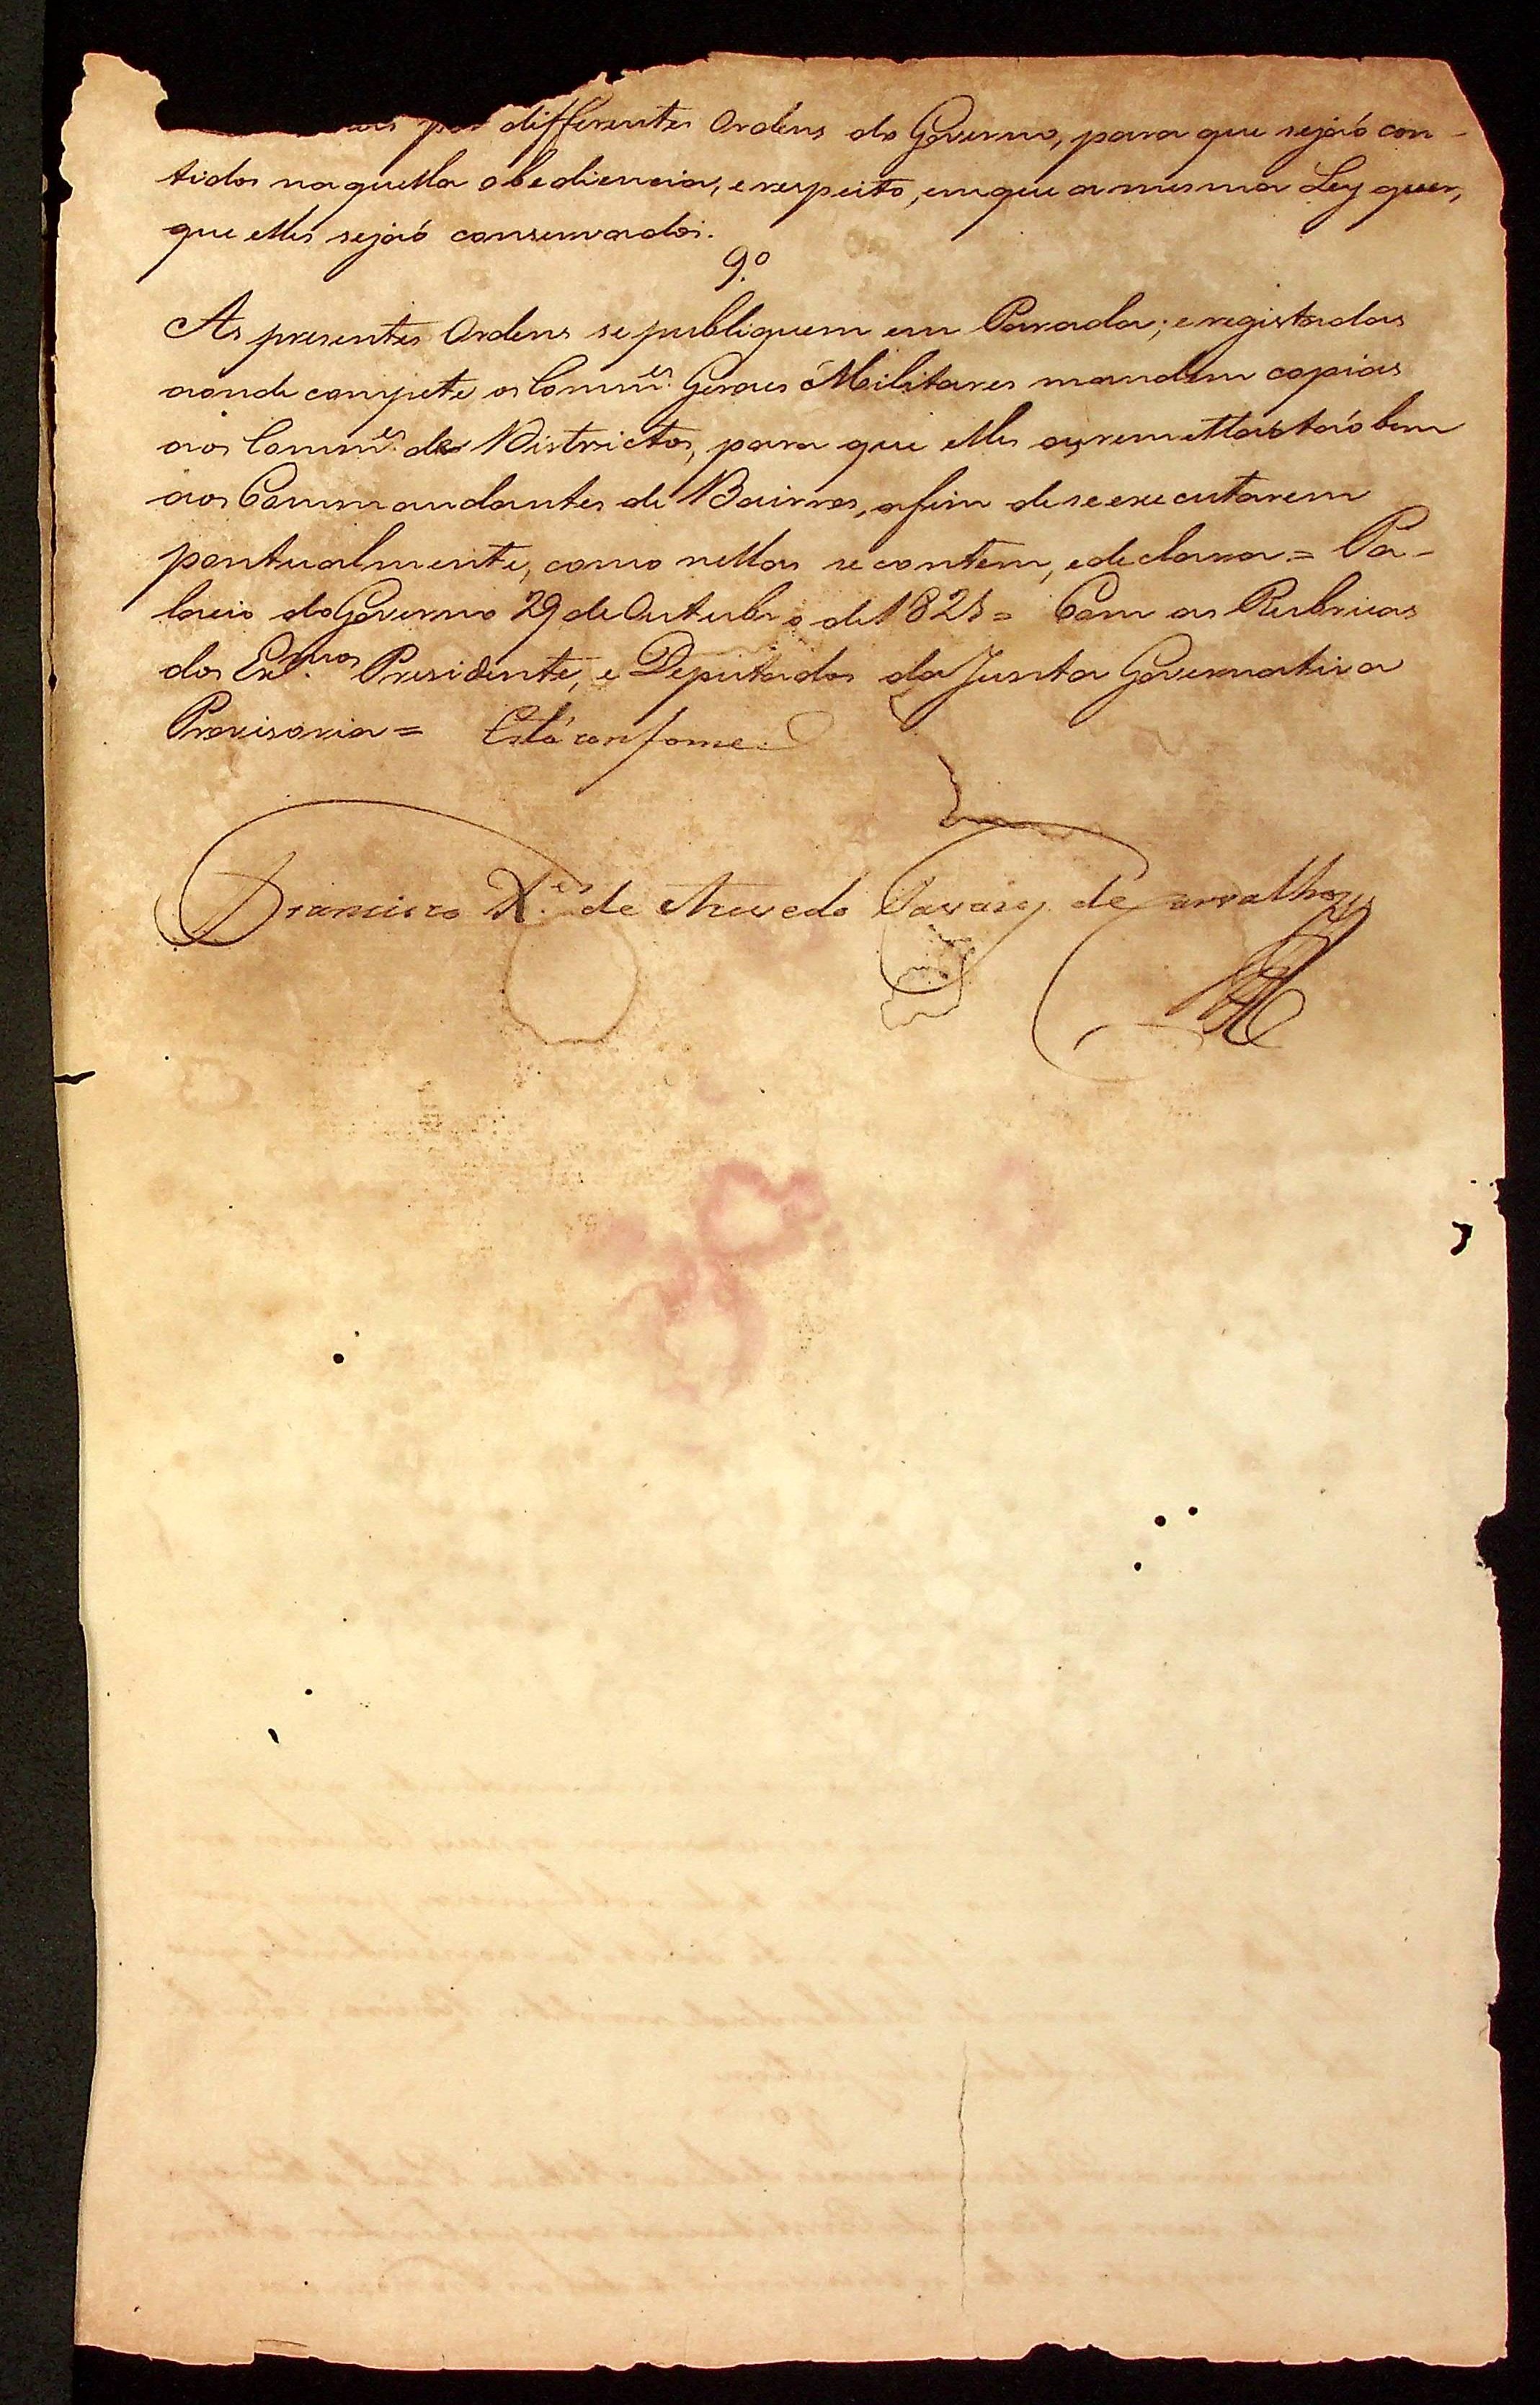 por differentes Ordens do Governo, para que sejaõ con-
tidos naquella obediencia, e respeito, em que a mesma Ley quer,
que elles sejaõ conservados.
9.º
As presentes Ordens se publiquem em Parada; e registadas
aonde compete os Comm.es Geraes Militares mandem copias
aos Comm.es de Districtos, para que elles as remettaõ taõbem
aos Commandantes de Bairros, afim de se executarem
pontualmente, como nellas se contem, e declara = Pa-
lacio do Governo 29 de Outubro de 1823 = Com as Rubricas
dos Ex.mos Presidente, e Deputados da Junta Governativa
Provisoria = Está conforme.
Francisco X.er de Azevedo Tavares de Carvalho